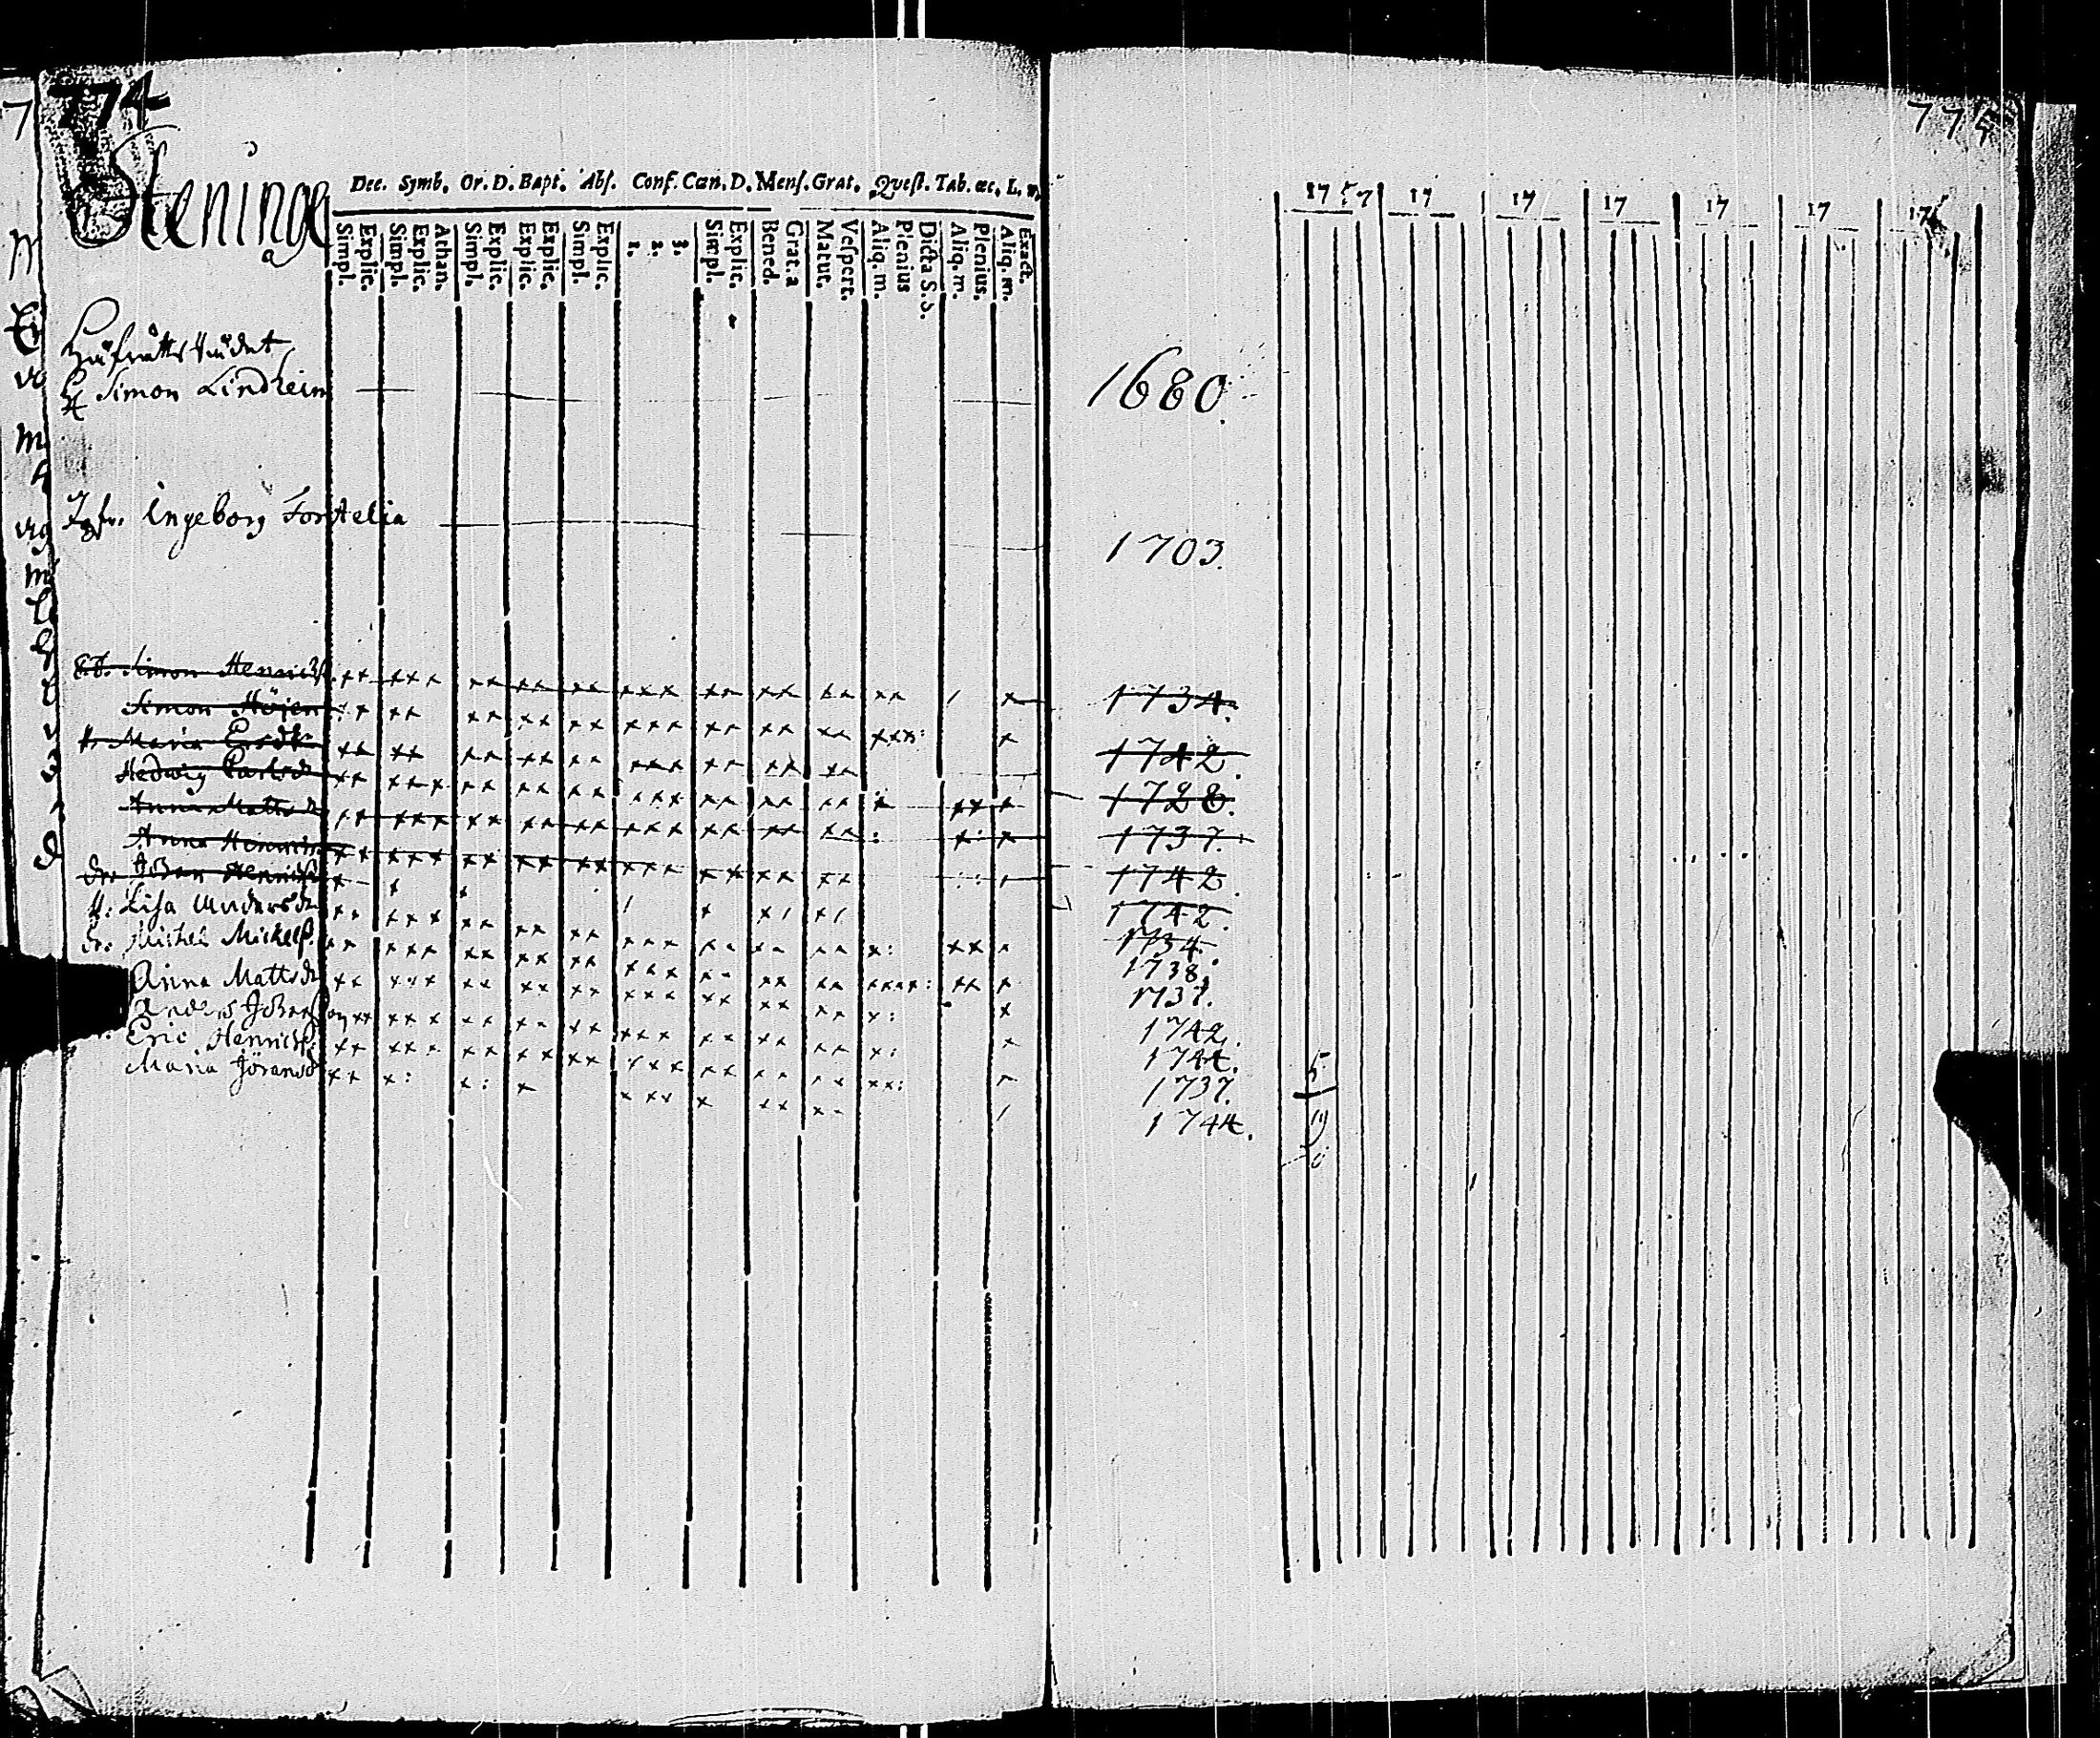 774
775
Steninge
Dec. Symb. Or. D. Bapt. Abs. Conf. Cœn. D. Mens. Grat. Qvest. Tab. œc. L. m.
Simpl. Explic. Simpl. Explic. Athan. Simpl. Explic. Explic. Explic. Simpl. Explic. 1. 2. 3. Simpl. Explic. Bened. Grat. a Matut. Vespert. Aliq. m. Plenius Dicta S. S. Aliq. m. Plenius. Aliq. m. Exact.
1757 17 17 17 17 17 17
Håfrätts Rådet
H Simon Lindheim 1680.
Jgfr. Ingeborg Fortelia 1703.
Simon Henrichs 1734.
Simon Höjen 1742.
H. Maria Ersdr 1728.
Hedwig Carlsdr 1737.
Anna Mattsdr 1742
Anna Henrichs 1742.
Dr. Johan Henrichs 1734.
H: Lisa Andersdr 1738.
Dr: Michel Michelss. 1737.
Anna Mattsdr 1742.
Anders Johansson 1744.
Eric Henrichss: 1737.
Maria Jöransd 1744.